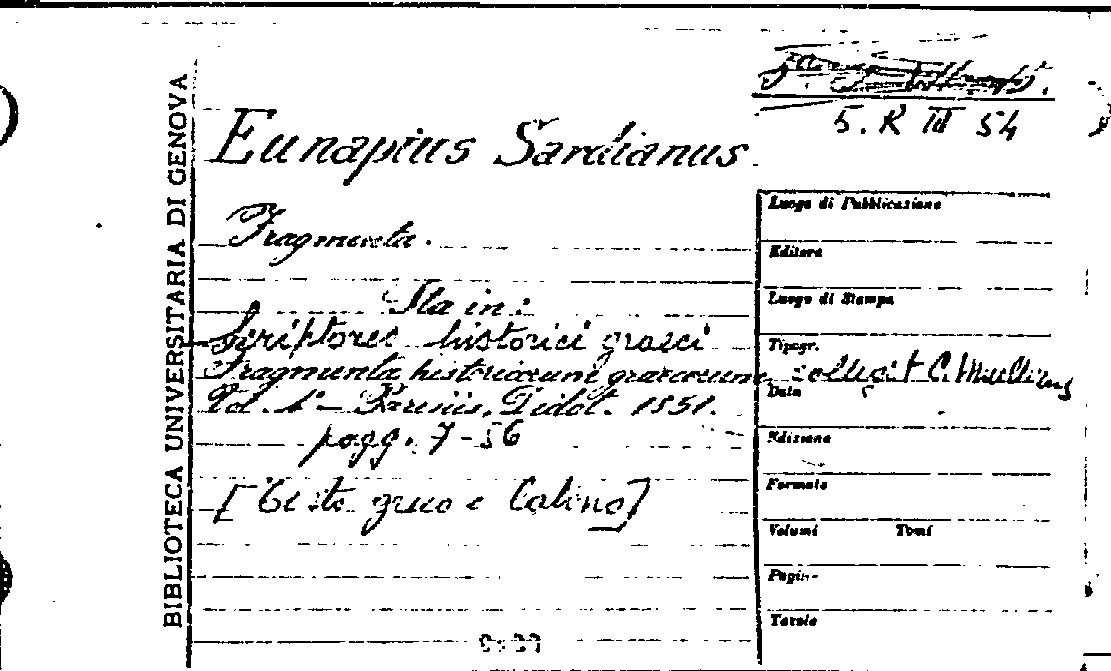 BIBLIOTECA UNIVERSITARIA DI GENOVA
5. K III 54
Eunapius Sardianus
Fragmenta.
Sta in:
Scriptores historici graeci
Fragmenta historicorum graecorum collegit C. Mullerus
Vol. 4° - Parisiis, Didot. 1851.
pagg. 7-56
[Testo greco e latino]
Luogo di Pubblicazione
Editore
Luogo di Stampa
Tipogr.
Data
Edizione
Formato
Volumi Tomi
Pagine
Tavole